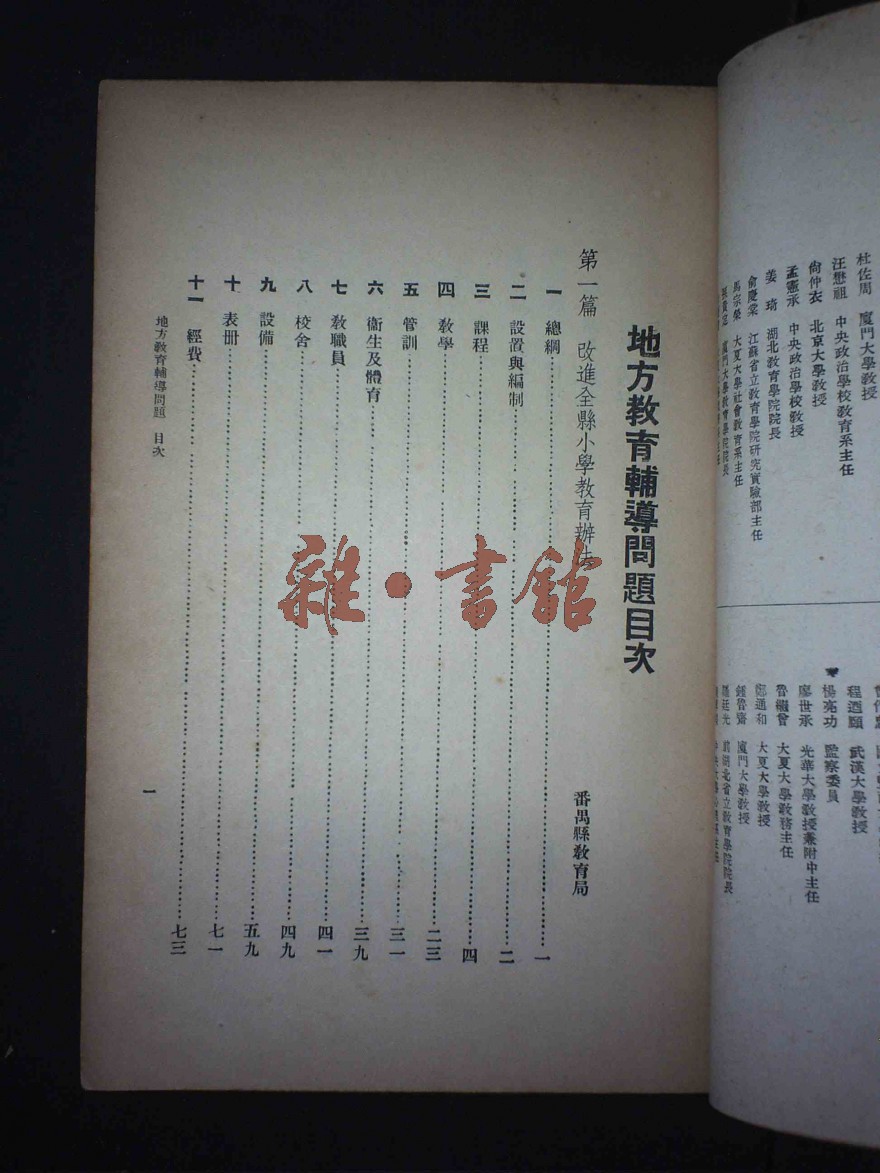 杜佐周 廈門大學教授
汪懋祖 中央政治學校教育系主任
尙仲衣 北京大學教授
孟憲承 中央政治學校教授
姜琦 湖北教育學院院長
俞慶棠 江蘇省立教育學院研究實驗部主任
馬宗榮 大夏大學社會教育系主任
程迺頤 武漢大學教授
楊亮功 監察委員
廖世承 光華大學教授兼附中主任
魯繼曾 大夏大學敎務主任
鄭通和 大夏大學教授
鍾魯齋 廈門大學教授
地方教育輔導問題目次
第一篇 改進全縣小學教育辦法 番禺縣敎育局
一 總綱 一
二 設置與編制 二
三 課程 四
四 敎學 二三
五 管訓 三一
六 衞生及體育 三九
七 敎職員 四一
八 校舍 四九
九 設備 五九
十 表册 七一
十一 經費 七三
地方敎育輔導問題 目次
一
雜·書館